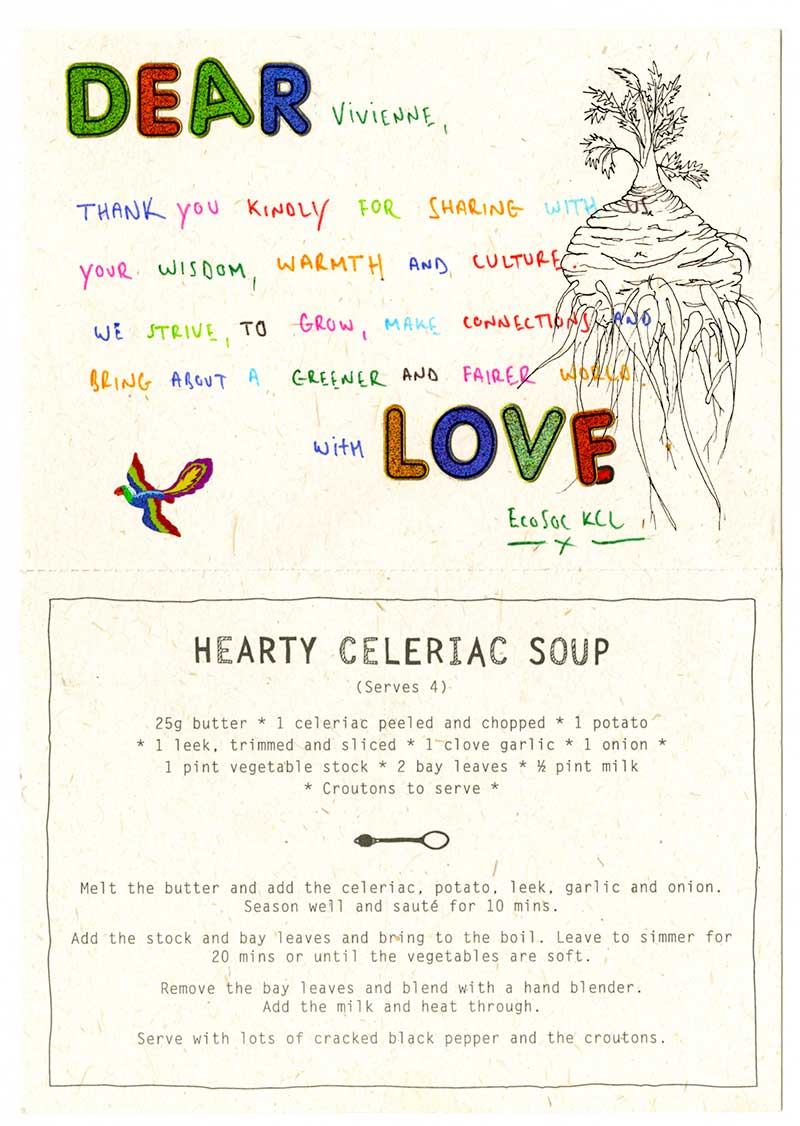 DEAR VIVIENNE,
THANK YOU KINDLY FOR SHARING WITH US
YOUR WISDOM, WARMTH AND CULTURE.
WE STRIVE, TO GROW, MAKE CONNECTIONS AND
BRING ABOUT A GREENER AND FAIRER WORLD.
WITH LOVE
ECOSOC KCL
X
HEARTY CELERIAC SOUP
(Serves 4)
25g butter * 1 celeriac peeled and chopped * 1 potato
* 1 leek, trimmed and sliced * 1 clove garlic * 1 onion *
1 pint vegetable stock * 2 bay leaves * ½ pint milk
* Croutons to serve *
Melt the butter and add the celeriac, potato, leek, garlic and onion.
Season well and sauté for 10 mins.
Add the stock and bay leaves and bring to the boil. Leave to simmer for
20 mins or until the vegetables are soft.
Remove the bay leaves and blend with a hand blender.
Add the milk and heat through.
Serve with lots of cracked black pepper and the croutons.